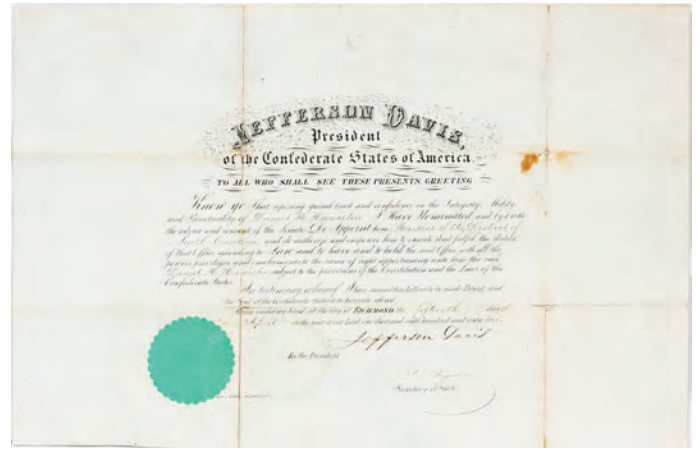 JEFFERSON DAVIS,
President
of the Confederate States of America.
TO ALL WHO SHALL SEE THESE PRESENTS GREETING
Know ye That reposing special trust and confidence in the Integrity Ability
and Punctuality of Daniel H. Hamilton I Have Nominated and by & with
the advice and consent of the Senate Do Appoint him Marshal of the District of
South Carolina and do authorize and empower him to execute and fulfil the duties
of that Office according to Law and to have and to hold the said Office with all the
powers privileges and emoluments to the same of right appertaining unto him the said
Daniel H. Hamilton subject to the provisions of the Constitution and the Laws of the
Confederate States.
In testimony whereof I have caused these Letters to be made Patent and
the Seal of the Confederate States to be hereunto affixed.
Given under my hand at the City of RICHMOND the day of
April in the year of our Lord one thousand eight hundred and sixty
Jefferson Davis
By the President
Secretary of State